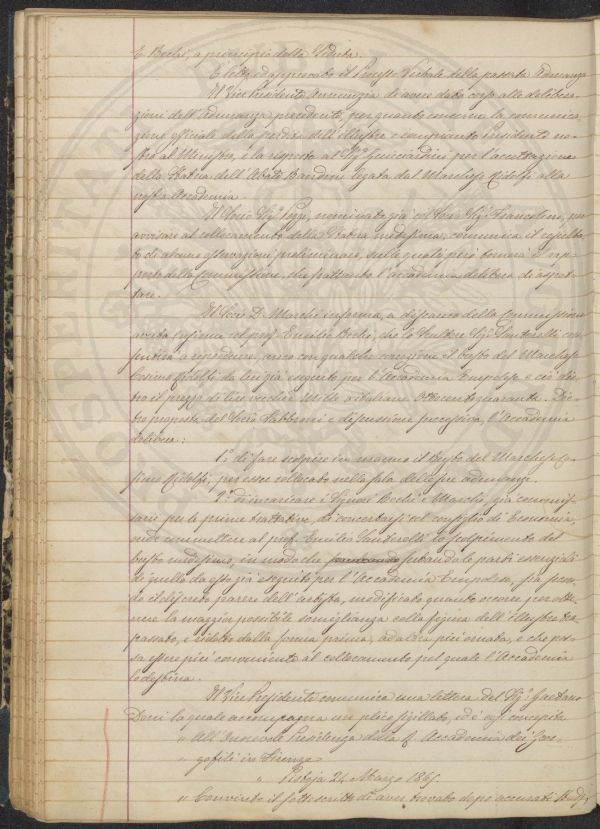 E. Bechi, a principio della Seduta.
È letto ed approvato il Processo Verbale della passata Adunanza
Il Vice Presidente Annunzia di avere dato corso alle delibera-
zioni dell'Adunanza precedente, per quanto concerne la comunica-
zione officiale della perdita dell'illustre e compianto Presidente no-
stro al Ministro, e la risposta al Sig.r Guicciardini per l'accettazione
della Statua dell'Abate Bandini legata dal Marchese Ridolfi alla
nostra Accademia.
Il Socio Sig.r Pepi, nominato già col Socio Sig.r Franceloni, per
avvisare al collocamento della Statua medesima, comunica il resulta-
to di alcune osservazioni preliminari, sulle quali però tornerà il rap-
porto della Commissione, che frattanto l'accademia delibera di aspet-
tare.
Il Socio D. Marchi informa, a discarico della Commissione
avuta insieme col prof. Emilio Bechi, che lo Scultore Sig.r Santarelli con-
sentirà a riprodurre, anco con qualche correzione il busto del Marchese
Cosimo Ridolfi da lui già eseguito per l'Accademia Empolese e ciò die-
tro il prezzo di Lire vecchie Mille ottocento quaranta. Die-
tro proposta del Socio Fabbroni e discussione successiva, l'Accademia
delibera:
1.o di fare scolpire in marmo il busto del Marchese Co-
simo Ridolfi, per esser collocato nella sala delle sue adunanze.
2.o di incaricare i Signori Bechi e Marchi, già commis-
sari per le prime trattative, di concertarsi col consiglio di Economia,
onde commettere al prof. Emilio Santarelli lo scolpimento del
busto medesimo, in modo che serbando le parti essenziali
di quello da esso già eseguito per l'Accademia Empolese, sia secon-
do il discreto parere dell'artista, modificato quanto occorre per otte-
nere la maggior possibile somiglianza colla figura dell'illustre tra-
passato, e ridotto dalla forma prima, ad altra più ornata, e che pos-
sa essere più conveniente al collocamento pel quale l'Accademia
lo destina.
Il Vice Presidente comunica una lettera del Sig.r Gaetano
Doni la quale accompagna un plico sigillato, ed è così concepita
" All'Onorevole Presidenza della R. Accademia dei Geor-
" gofili in Firenze
" Pistoja 24 Marzo 1865.
" Convinto il sottoscritto di aver trovato dopo accurati studj,